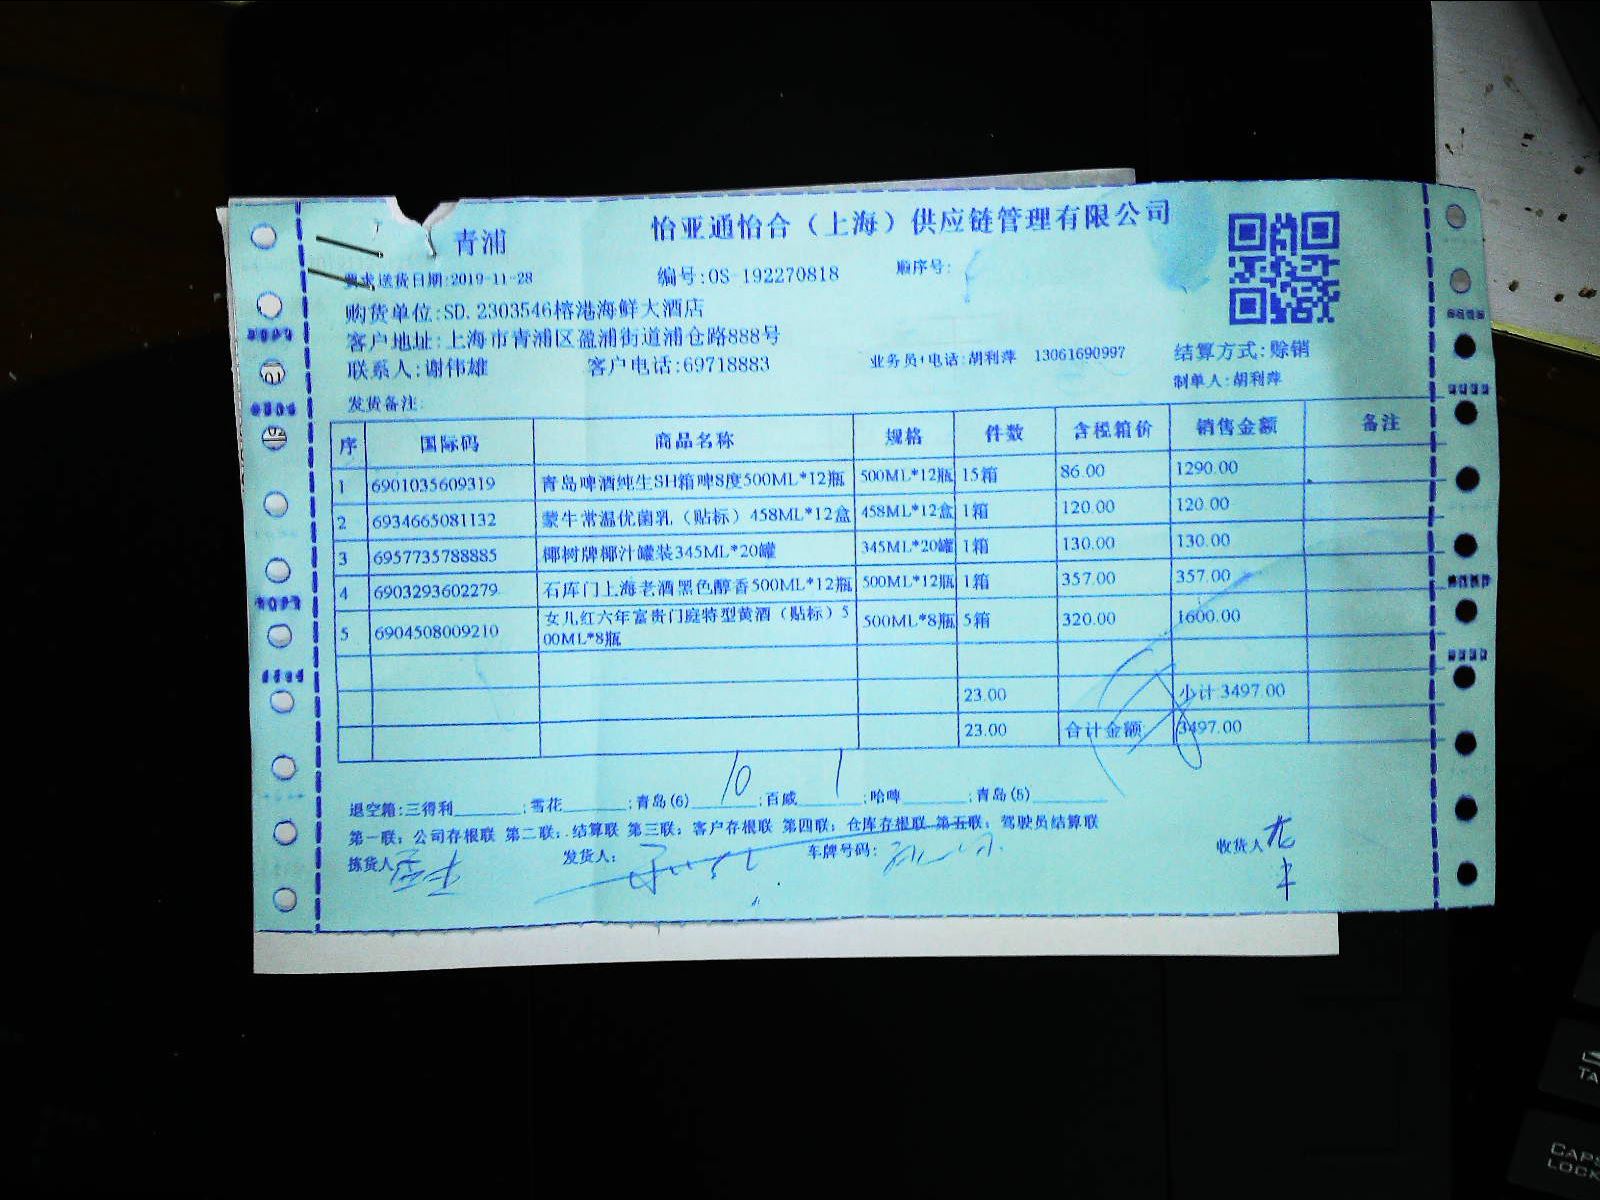 青浦
怡亚通怡合（上海）供应链管理有限公司
要求送货日期:2019-11-28 编号:OS-192270818 顺序号:
购货单位:SD.2303546榕港海鲜大酒店
客户地址:上海市青浦区盈浦街道浦仓路888号
联系人:谢伟雄 客户电话:69718883 业务员+电话:胡利萍 13061690997 结算方式:赊销
制单人:胡利萍
发货备注:
序 国际码 商品名称 规格 件数 含税箱价 销售金额 备注
1 6901035609319 青岛啤酒纯生SH箱啤8度500ML*12瓶 500ML*12瓶 15箱 86.00 1290.00
2 6934665081132 蒙牛常温优菌乳（贴标）458ML*12盒 458ML*12盒 1箱 120.00 120.00
3 6957735788885 椰树牌椰汁罐装345ML*20罐 345ML*20罐 1箱 130.00 130.00
4 6903293602279 石库门上海老酒黑色醇香500ML*12瓶 500ML*12瓶 1箱 357.00 357.00
5 6904508009210 女儿红六年富贵门庭特型黄酒（贴标）5
00ML*8瓶 500ML*8瓶 5箱 320.00 1600.00
23.00 小计 3497.00
23.00 合计金额 3497.00
10 1
退空箱:三得利______;雪花______;青岛(6)______;百威______;哈啤______;青岛(8)______
第一联：公司存根联 第二联：结算联 第三联：客户存根联 第四联：仓库存根联 第五联：驾驶员结算联
拣货人 发货人： 车牌号码： 收货人
TA
CAPS
LOCK